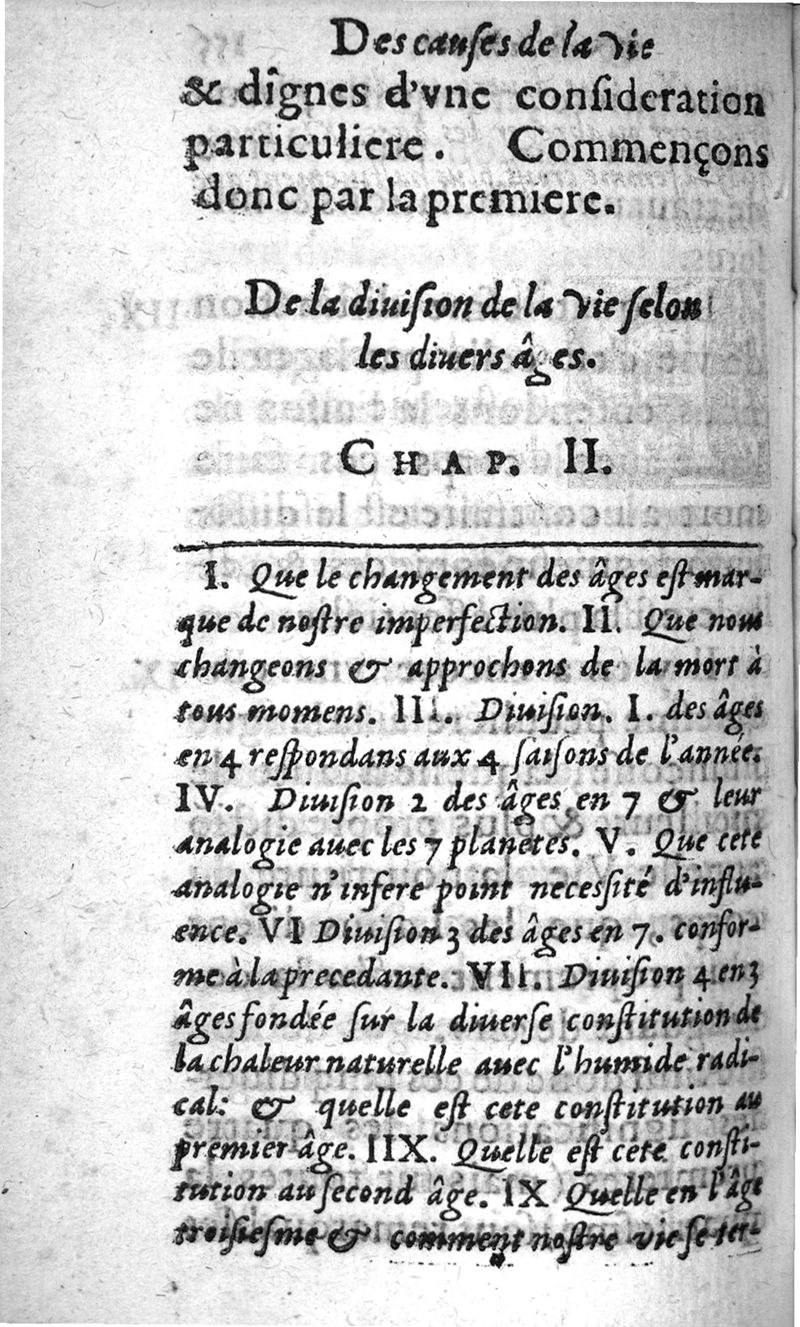 Des cauſes de la vie
& dîgnes d'vne conſideration
particuliere. Commençons
donc par la premiere.
De la diuiſion de la vie ſelon
les diuers âges.
CHAP. II.
I. Que le changement des âges eſt mar-
que de noſtre imperfection. II. Que nous
changeons & approchons de la mort à
tous momens. III. Diuiſion. I. des âges
en 4 reſpondans aux 4 ſaiſons de l'année.
IV. Diuiſion 2 des âges en 7 & leur
analogie auec les 7 planetes. V. Que cete
analogie n'infere point neceſſité d'influ-
ence. VI Diuiſion 3 des âges en 7. confor-
me à la precedante. VII. Diuiſion 4 en 3
âges fondée ſur la diuerſe conſtitution de
la chaleur naturelle auec l'humide radi-
cal: & quelle eſt cete conſtitution au
premier âge. IIX. Quelle eſt cete conſti-
tution au ſecond âge. IX Quelle en l'âge
troiſieſme & comment noſtre vie ſe ter-